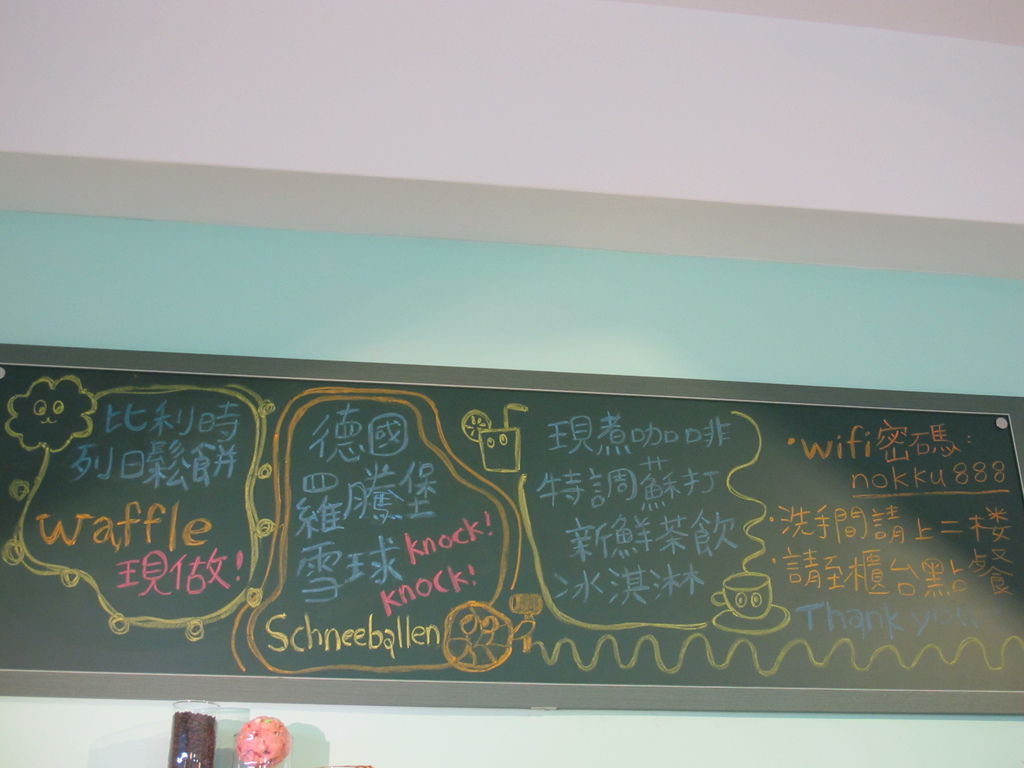 比利時
列日鬆餅
waffle
現做!
德國
羅騰堡
雪球
knock!
knock!
Schneeballen
現煮咖啡
特調蘇打
新鮮茶飲
冰淇淋
·wifi密碼:
nokku888
·洗手間請上二楼
·請至櫃台點餐
Thank you